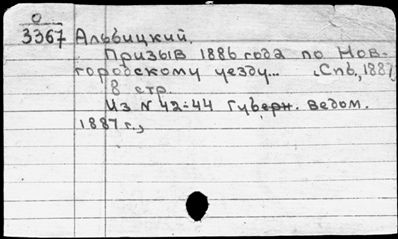 0
3367 Альвицкий.
Призыв 1886 года по Нов-
городскому уезду... Спб, 1887
8 стр.
Из N 42-44 Губерн. ведом.
1887 г.,